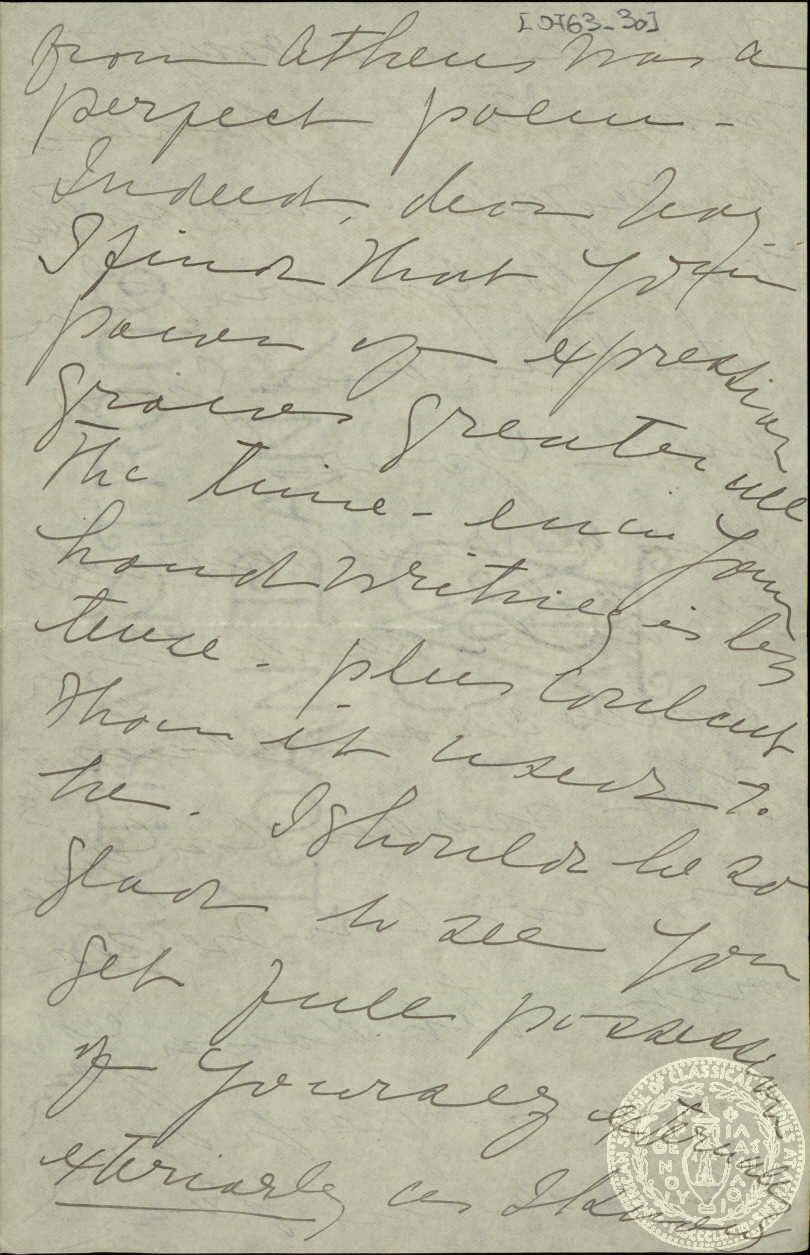 [0763-30]
from Athens was a
perfect poem -
Indeed, dear
I find that your
power of expression
grows greater all
the time - even your
handwriting is less
tense - plus
than it used to
be. I should be so
glad to see you
get full possession
of yourself externally
exteriorly as I
AMERICAN SCHOOL OF CLASSICAL STUDIES AT